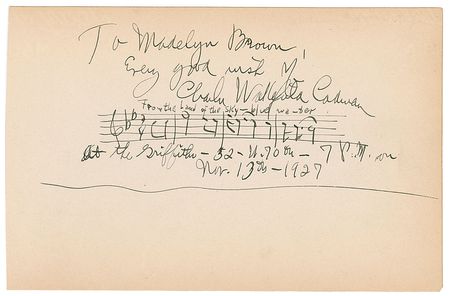 To Madelyn Brown,
Every good wish of
Charles Wakefield Cadman
From the Land of the Sky-blue wa-ter
At the Griffith - 52 - W. 70th - 7 P.M. on
Nov. 13th - 1927